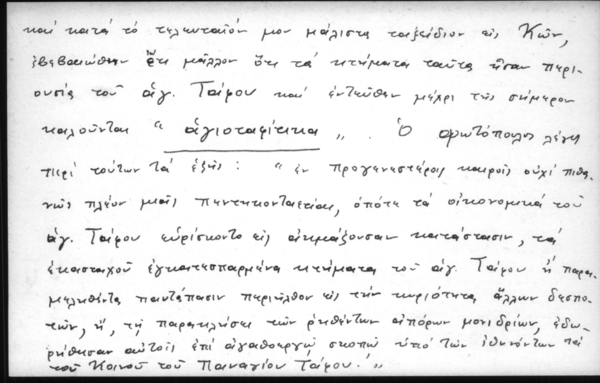 καὶ κατὰ τὸ τελευταῖόν μου μάλιστα ταξείδιον εἰς Κῶν,
ἐβεβαιώθην ἔτι μᾶλλον ὅτι τὰ κτήματα ταῦτα ἦσαν περι-
ουσία τοῦ ἁγ. Τάφου καὶ ἐντεῦθεν μέχρι τῆς σήμερον
καλοῦνται "ἁγιοταφίτικα". Ὁ Φωτόπουλος λέγει
περὶ τούτων τὰ ἑξῆς: "ἐν προγενεστέροις καιροῖς οὐχὶ πιθα-
νῶς πλέον μιᾶς πεντηκονταετίας, ὁπότε τὰ οἰκονομικὰ τοῦ
ἁγ. Τάφου εὑρίσκοντο εἰς ἀκμάζουσαν κατάστασιν, τὰ
ἑκασταχοῦ ἐγκατεσπαρμένα κτήματα τοῦ ἁγ. Τάφου ἢ παρα-
μεληθέντα παντάπασιν περιῆλθον εἰς τὴν κυριότητα ἄλλων δεσπο-
τῶν, ἤ, τῇ παρακλήσει τῶν ῥηθέντων ἀπόρων μονιδρίων, ἐδω-
ρήθησαν αὐτοῖς ἐπὶ ἀγαθοεργῷ σκοπῷ ὑπὸ τῶν ἰθυνόντων τὰ
τοῦ Κοινοῦ τοῦ Παναγίου Τάφου."